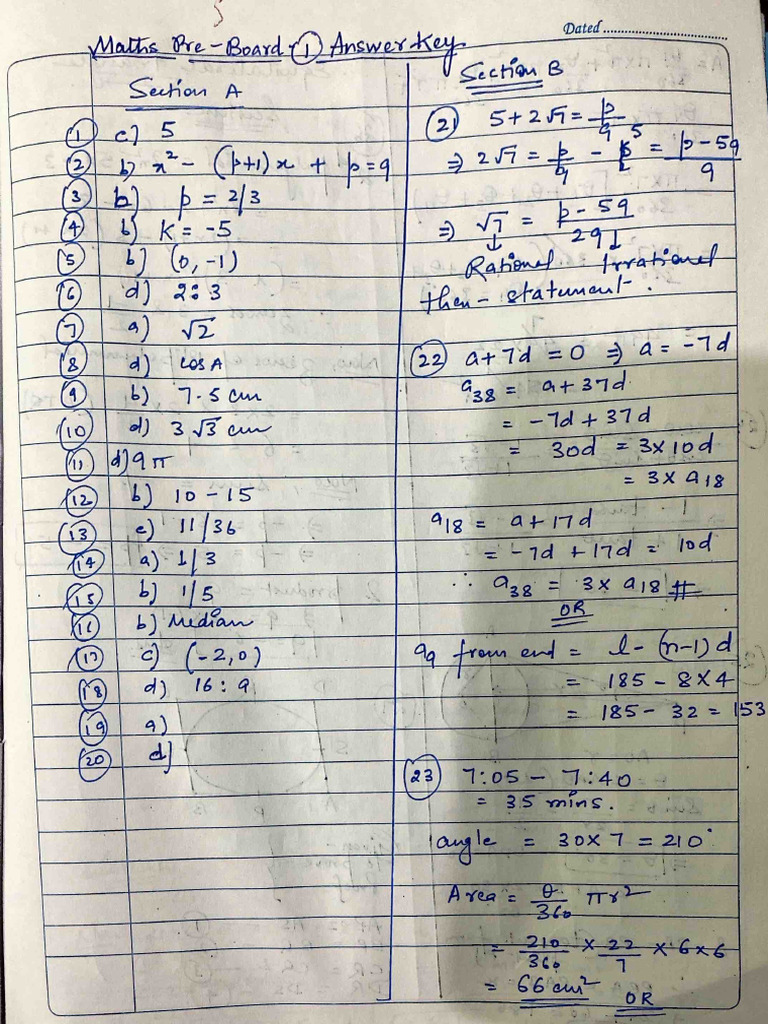 Dated
Maths Pre-Board-① Answer Key
Section A
① c) 5
② b) x² - (p+1)x + p = 9
③ b) p = 2/3
④ b) K = -5
⑤ b) (0, -1)
⑥ d) 2:3
⑦ a) √2
⑧ d) cos A
⑨ b) 7.5 cm
⑩ d) 3√3 cm
⑪ d) 9π
⑫ b) 10 - 15
⑬ c) 11/36
⑭ a) 1/3
⑮ b) 1/5
⑯ b) Median
⑰ c) (-2,0)
⑱ d) 16:9
⑲ a)
⑳ d)
Section B
㉑ 5+2√7 = p/q
⇒ 2√7 = p/q - 5 = (p-5q)/q
⇒ √7 = (p-5q)/2q
↓ ↓
Rational Irrational
then - statement.
㉒ a+7d = 0 ⇒ a = -7d
a₃₈ = a+37d
= -7d+37d
= 30d = 3×10d
= 3×a₁₈
a₁₈ = a+17d
= -7d+17d = 10d
∴ a₃₈ = 3×a₁₈ #
OR
a₉ from end = l-(n-1)d
= 185 - 8×4
= 185 - 32 = 153
㉓ 7:05 - 7:40
= 35 mins.
angle = 30×7 = 210°
Area = θ/360 πr²
= 210/360 × 22/7 × 6×6
= 66 cm² OR